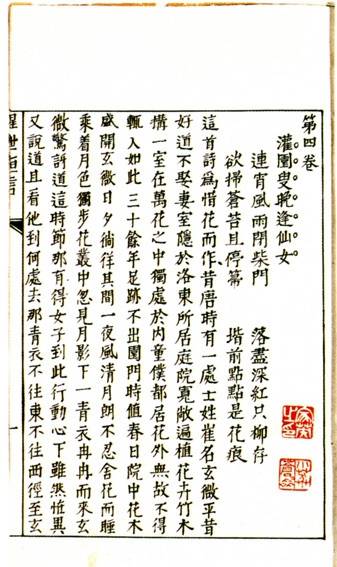 第四卷
灌園叟晚逢仙女
連宵風雨閉柴門　落盡深紅只柳存
欲掃蒼苔且停箒　堦前點點是花痕
這首詩爲惜花而作昔唐時有一處士姓崔名玄微平昔
好道不娶妻室隱於洛東所居庭院寬敞遍植花卉竹木
搆一室在萬花之中獨處於內童僕都居花外無故不得
輒入如此三十餘年足跡不出園門時值春日院中花木
盛開玄微日夕徜徉其間一夜風清月朗不忍舍花而睡
乘着月色獨步花叢中忽見月影下一青衣冉冉而來玄
微驚訝道這時節那有得女子到此行動心下雖然恠異
又說道且看他到何處去那青衣不往東不往西徑至玄
醒世恒言
一